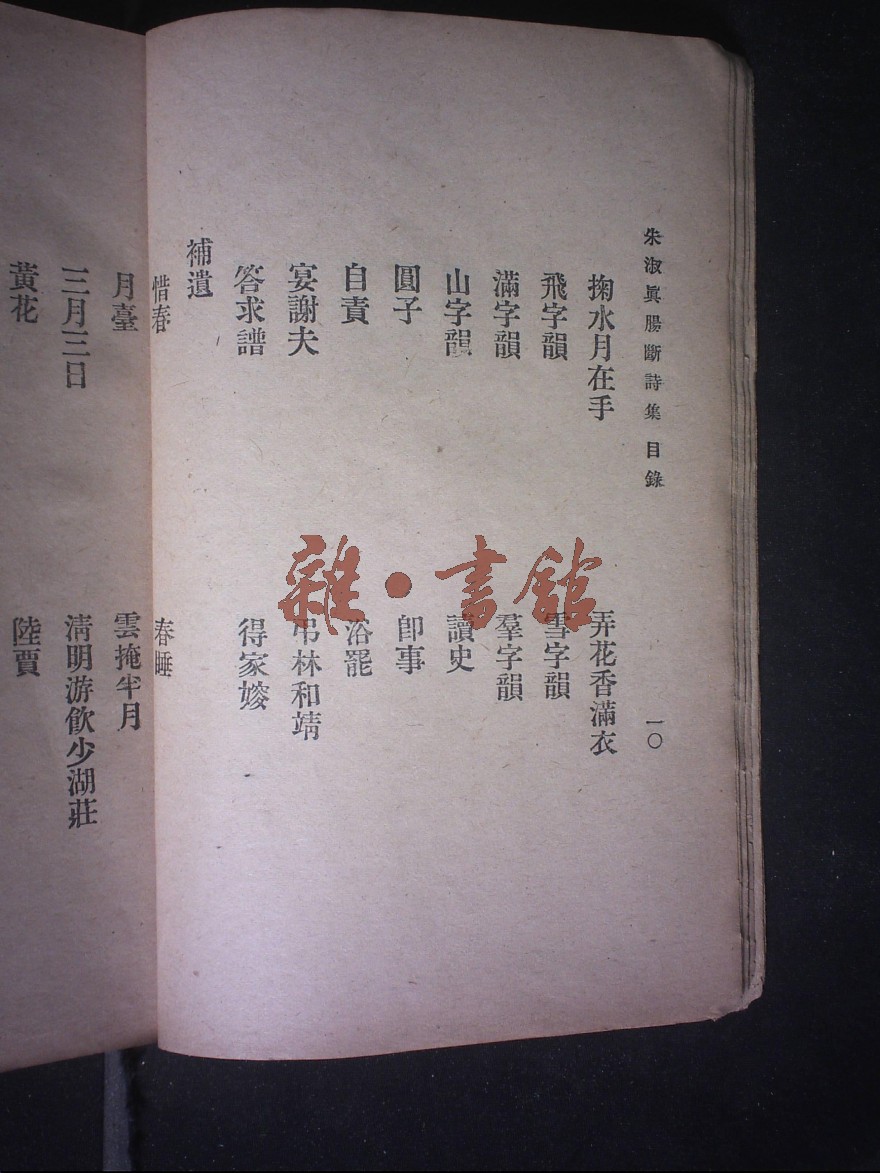 朱淑眞腸斷詩集 目錄 一〇
掬水月在手 弄花香滿衣
飛字韻 雪字韻
滿字韻 羣字韻
山字韻 讀史
圓子 卽事
自責 浴罷
宴謝夫 弔林和靖
答求譜 得家嫂
補遺
惜春 春睡
月臺 雲掩半月
三月三日 淸明游飮少湖莊
黃花 陸賈
雜·書館